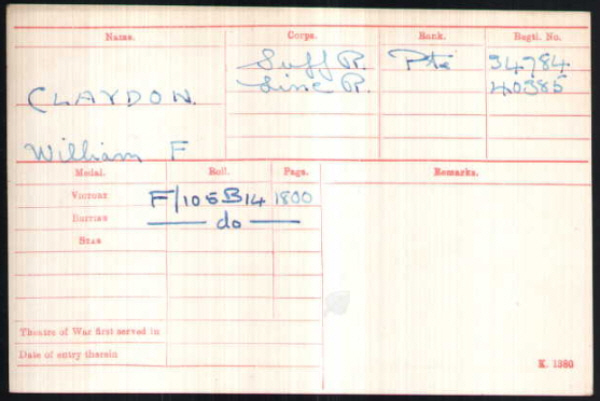 Name. Corps. Rank. Regtl. No.
Suff R. Pte 34784
CLAYDON. Linc R. 40385
William F
Medal. Roll. Page. Remarks.
Victory F/105B14 1800
British do
Star
Theatre of War first served in
Date of entry therein
K. 1380